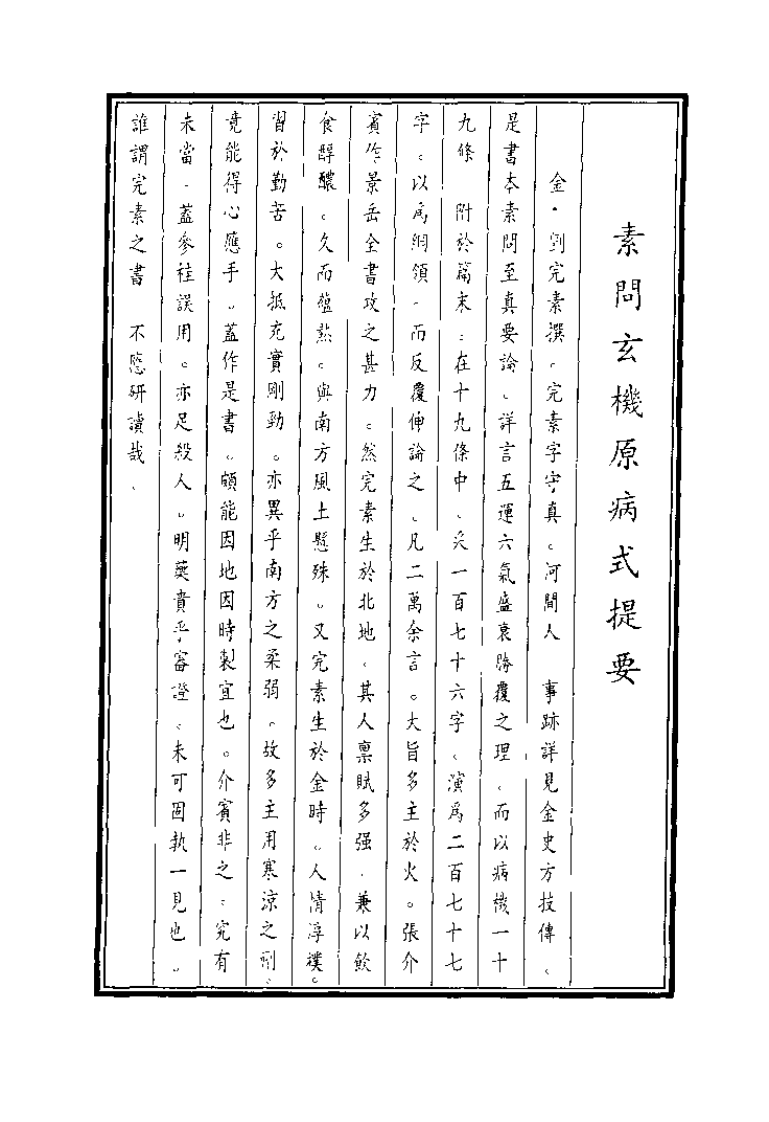 素問玄機原病式提要
金·劉完素撰。完素字守真。河間人　事跡詳見金史方技傳、
是書本素問至真要論、詳言五運六氣盛衰勝覆之理、而以病機一十
九條　附於篇末：在十九條中、采一百七十六字、演爲二百七十七
字。以爲綱領，而反覆伸論之、凡二萬余言。大旨多主於火。張介
賓作景岳全書攻之甚力。然完素生於北地，其人稟賦多强，兼以飲
食醇醲。久而蘊熱。與南方風土懸殊。又完素生於金時。人情淳樸。
習於勤苦。大抵充實剛勁。亦異乎南方之柔弱。故多主用寒涼之劑。
竟能得心應手。蓋作是書。頗能因地因時製宜也。介賓非之：究有
未當，蓋參桂誤用。亦足殺人。明藥貴乎審證、未可固執一見也。
誰謂完素之書　不應研讀哉、